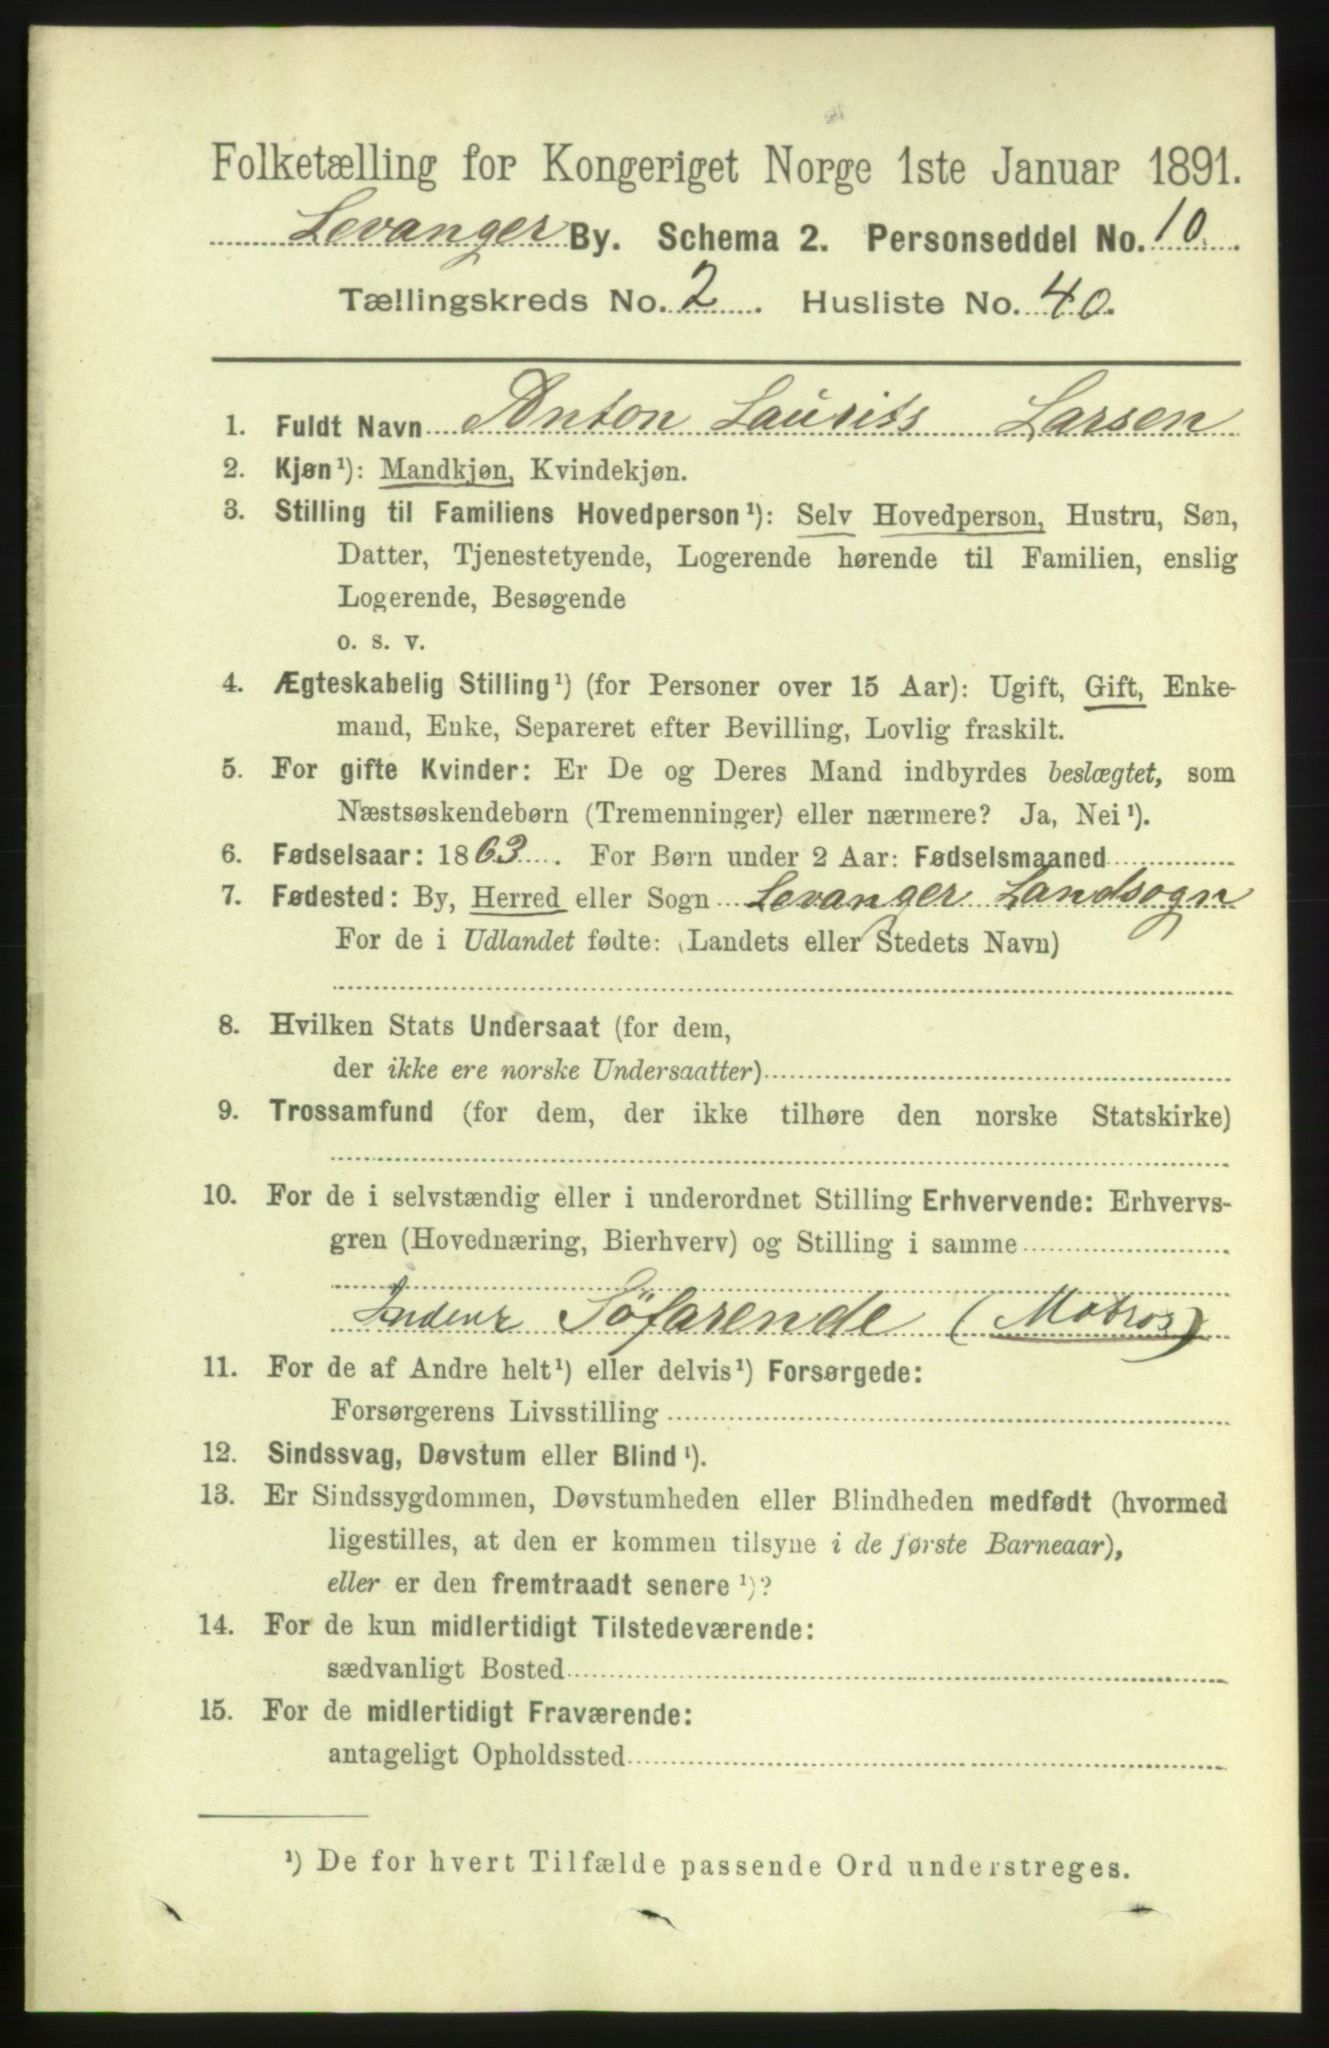 Folketælling for Kongeriget Norge 1ste Januar 1891.
Levanger By. Schema 2. Personseddel No. 10
Tællingskreds No. 2. Husliste No. 40.
1. Fuldt Navn Anton Laurits Larsen
2. Kjøn¹): Mandkjøn, Kvindekjøn.
3. Stilling til Familiens Hovedperson¹): Selv Hovedperson, Hustru, Søn,
Datter, Tjenestetyende, Logerende hørende til Familien, enslig
Logerende, Besøgende
o. s. v.
4. Ægteskabelig Stilling¹) (for Personer over 15 Aar): Ugift, Gift, Enke-
mand, Enke, Separeret efter Bevilling, Lovlig fraskilt.
5. For gifte Kvinder: Er De og Deres Mand indbyrdes beslægtet, som
Næstsøskendebørn (Tremenninger) eller nærmere? Ja, Nei¹).
6. Fødselsaar: 1863. For Børn under 2 Aar: Fødselsmaaned
7. Fødested: By, Herred eller Sogn Levanger Landsogn
For de i Udlandet fødte: (Landets eller Stedets Navn)
8. Hvilken Stats Undersaat (for dem,
der ikke ere norske Undersaatter)
9. Trossamfund (for dem, der ikke tilhøre den norske Statskirke)
10. For de i selvstændig eller i underordnet Stilling Erhvervende: Erhvervs-
gren (Hovednæring, Bierhverv) og Stilling i samme
Søfarende (Matros)
11. For de af Andre helt¹) eller delvis¹) Forsørgede:
Forsørgerens Livsstilling
12. Sindssvag, Døvstum eller Blind¹).
13. Er Sindssygdommen, Døvstumheden eller Blindheden medfødt (hvormed
ligestilles, at den er kommen tilsyne i de første Barneaar),
eller er den fremtraadt senere¹)?
14. For de kun midlertidigt Tilstedeværende:
sædvanligt Bosted
15. For de midlertidigt Fraværende:
antageligt Opholdssted
¹) De for hvert Tilfælde passende Ord understreges.